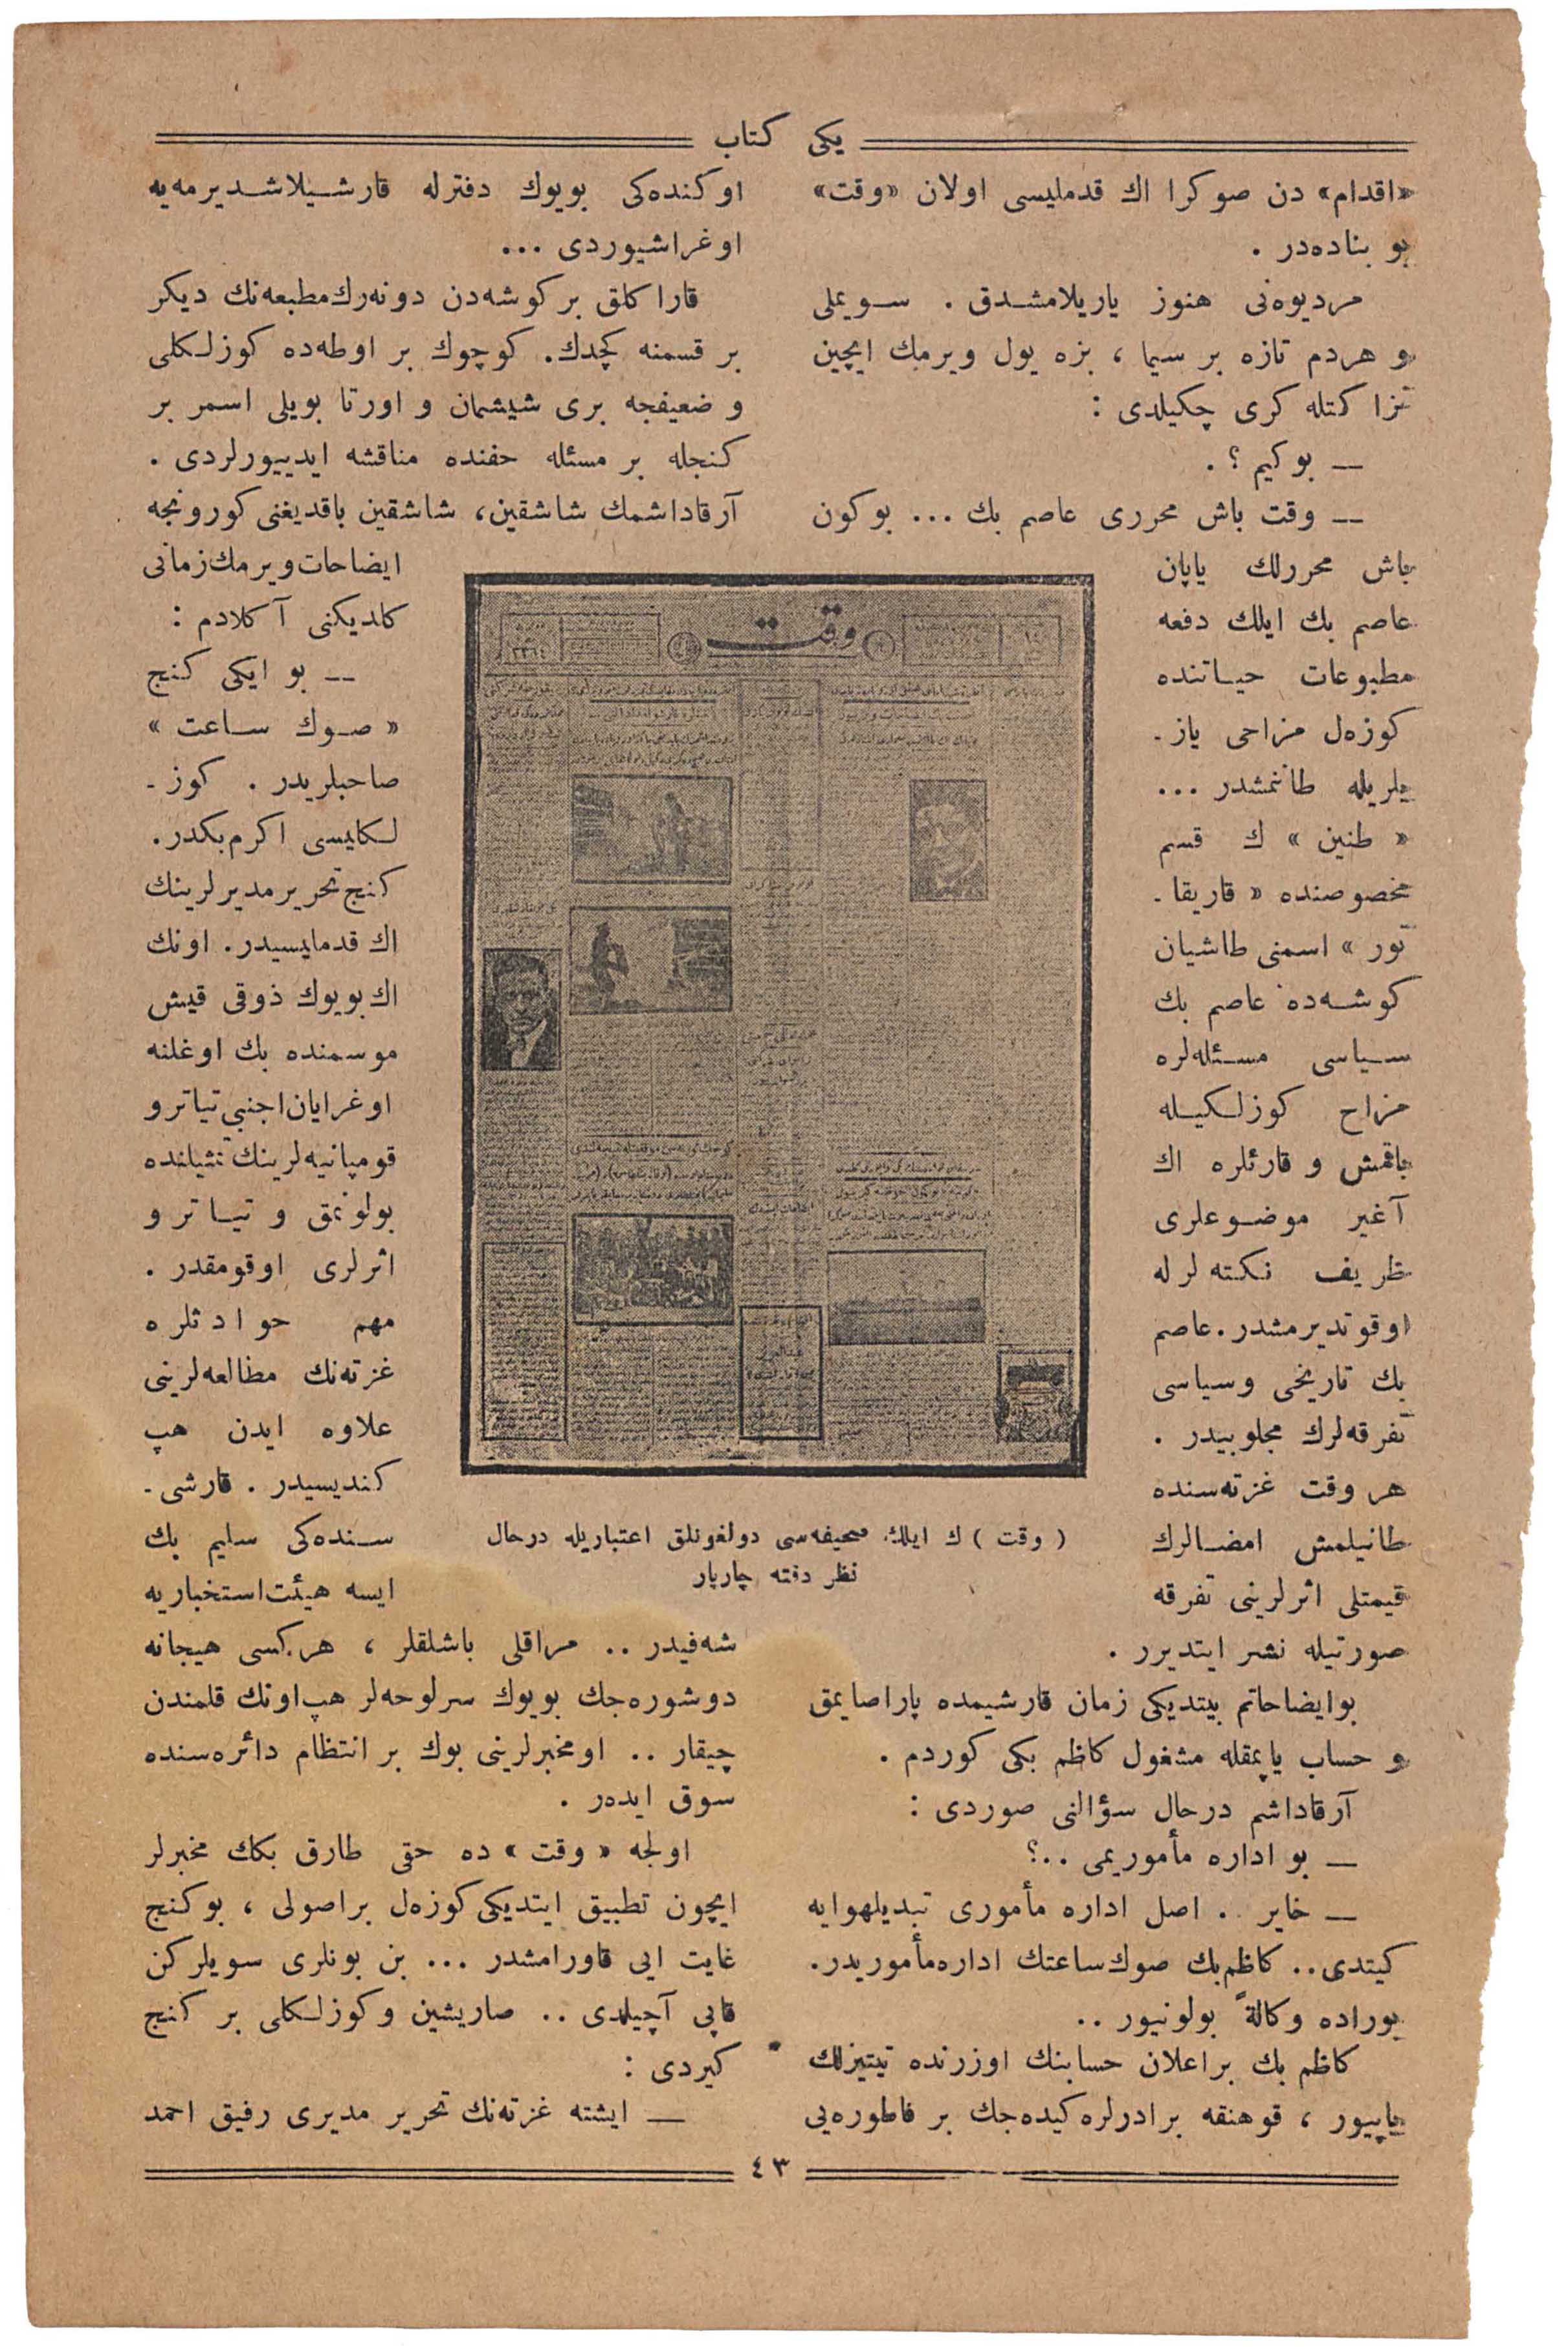 یکی کتاب
«اقدام» دن صوکرا اك قدملیسی اولان «وقت»
بو بناده‌در .
مردیوه‌نی هنوز یاریلامشدق . سویملی
و هردم تازه بر سیما ، بزه یول ویرمك ایچین
نزاکتله کری چکیلدی :
— بو کیم ؟ .
— وقت باش محرری عاصم بك ... بوکون
باش محررلك یاپان
عاصم بك ایلك دفعه
مطبوعات حیاتنده
کوزه‌ل مزاحی یاز-
یلریله طانمشدر ...
« طنین » ك قسم
مخصوصنده « قاریقا-
تور » اسمنی طاشیان
کوشه‌ده عاصم بك
سیاسی مسئله‌لره
مزاح کوزلکیله
باقمش و قارئلره اك
آغیر موضوعلری
ظریف نکته لرله
اوقوتدیرمشدر . عاصم
بك تاریخی وسیاسی
تفرقه‌لرك مجلوبیدر .
هر وقت غزته‌سنده
طانیلمش امضالرك
قیمتلی اثرلرینی تفرقه
صورتیله نشر ایتدیرر .
بو ایضاحاتم بیتدیکی زمان قارشیمده پاراصایمق
و حساب یاپمقله مشغول کاظم بکی کوردم .
آرقاداشم درحال سؤالنی صوردی :
— بو اداره مأموریمی ..؟
— خایر .. اصل اداره مأموری تبدیلهوایه
کیتدی .. کاظم‌بك صوك‌ساعتك اداره‌مأموریدر.
بوراده وکالةً بولونیور ..
کاظم بك بر اعلان حسابنك اوزرنده تیتیزلك
یاپیور ، قوهنقه برادرلره کیده‌جك بر فاطوره‌یی
اوکنده‌کی بویوك دفترله قارشیلاشدیرمه‌یه
اوغراشیوردی ...
قاراکلق بر کوشه‌دن دونه‌رك مطبعه‌نك دیکر
بر قسمنه کچدك. کوچوك بر اوطه‌ده کوزلکلی
و ضعیفجه بری شیشمان و اورتا بویلی اسمر بر
کنجله بر مسئله حقنده مناقشه ایدییورلردی .
آرقاداشمك شاشقین، شاشقین باقدیغنی کورونجه
ایضاحات‌ویرمك‌زمانی
کلدیکنی آکلادم :
— بو ایکی کنج
« صوك ساعت »
صاحبلریدر . کوز-
لکلیسی اکرم‌بکدر.
کنج تحریر مدیرلرینك
اك قدملیسیدر. اونك
اك بویوك ذوقی قیش
موسمنده بك اوغلنه
اوغرایان اجنبی تیاترو
قومپانیه‌لرینك تمثیلنده
بولونمق و تیاترو
اثرلری اوقومقدر .
مهم حوادثلره
غزته‌نك مطالعه‌لرینی
علاوه ایدن هپ
کندیسیدر . قارشی-
سنده‌کی سلیم بك
ایسه هیئت‌استخباریه
شه‌فیدر .. مراقلی باشلقلر ، هرکسی هیجانه
دوشوره‌جك بویوك سرلوحه‌لر هپ‌اونك قلمندن
چیقار .. او مخبرلرینی بوك بر انتظام دائره‌سنده
سوق ایده‌ر .
اولجه « وقت » ده حقی طارق بکك مخبرلر
ایچون تطبیق ایتدیکی کوزه‌ل بر اصولی ، بوکنج
غایت ایی قاورامشدر ... بن بونلری سویلرکن
قاپی آچیلدی .. صاریشین و کوزلکلی بر کنج
کیردی :
— ایشته غزته‌نك تحریر مدیری رفیق احمد
وقت
٣٣٦٤
( وقت ) ك ایلك صحیفه‌سی دولغونلق اعتباریله درحال
نظر دقته چارپار
٤٣